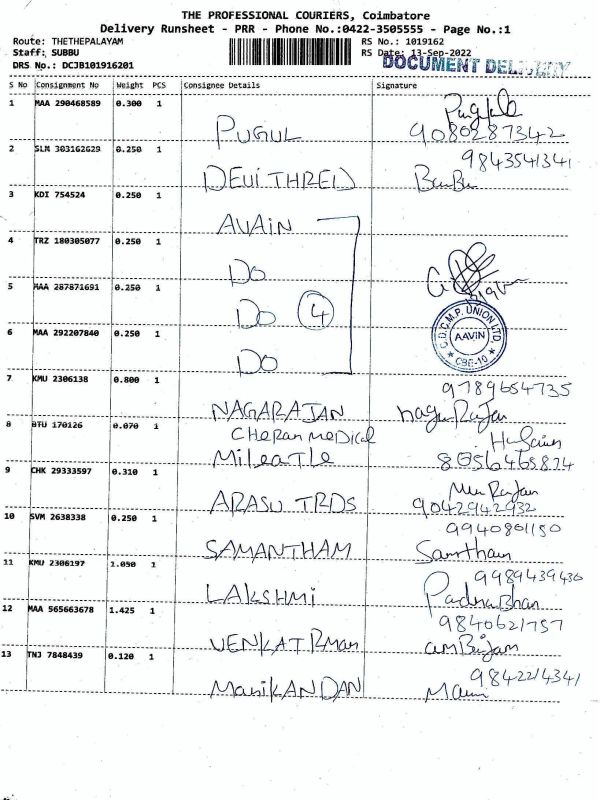 THE PROFESSIONAL COURIERS, Coimbatore
Delivery Runsheet - PRR - Phone No.:0422-3505555 - Page No.:1
Route: THETHEPALAYAM RS No.: 1019162
Staff: SUBBU RS Date: 13-Sep-2022
DRS No.: DCJB101916201 DOCUMENT DELIVERY
S No Consignment No Weight PCS Consignee Details Signature
1 MAA 290468589 0.300 1
PUGUL 9080287342
2 SLM 303162629 0.250 1 9843541341
DEVITHREID
3 KDI 754524 0.250 1
AVAIN
4 TRZ 180305077 0.250 1
DO
5 MAA 287871691 0.250 1
DO 4
6 MAA 292207840 0.250 1 C.D.C.M.P. UNION LTD. AAVIN CBE-10
DO
7 KMU 2306138 0.800 1 9789654735
NAGARAJAN nagu Rajan
8 BTU 170126 0.070 1
CHERAN MEDICAL
MILEATLE 8056465874
9 CHK 29333597 0.310 1
ARASU TRDS 9042942932
10 SVM 2638338 0.250 1 9940801150
SAMANTHAM Samtham
11 KMU 2306197 1.050 1 9989439430
LAKSHMI
12 MAA 565663678 1.425 1 9840621757
VENKATRMAN
13 TNJ 7848439 0.120 1 9842214341
MANIKANDAN Mani